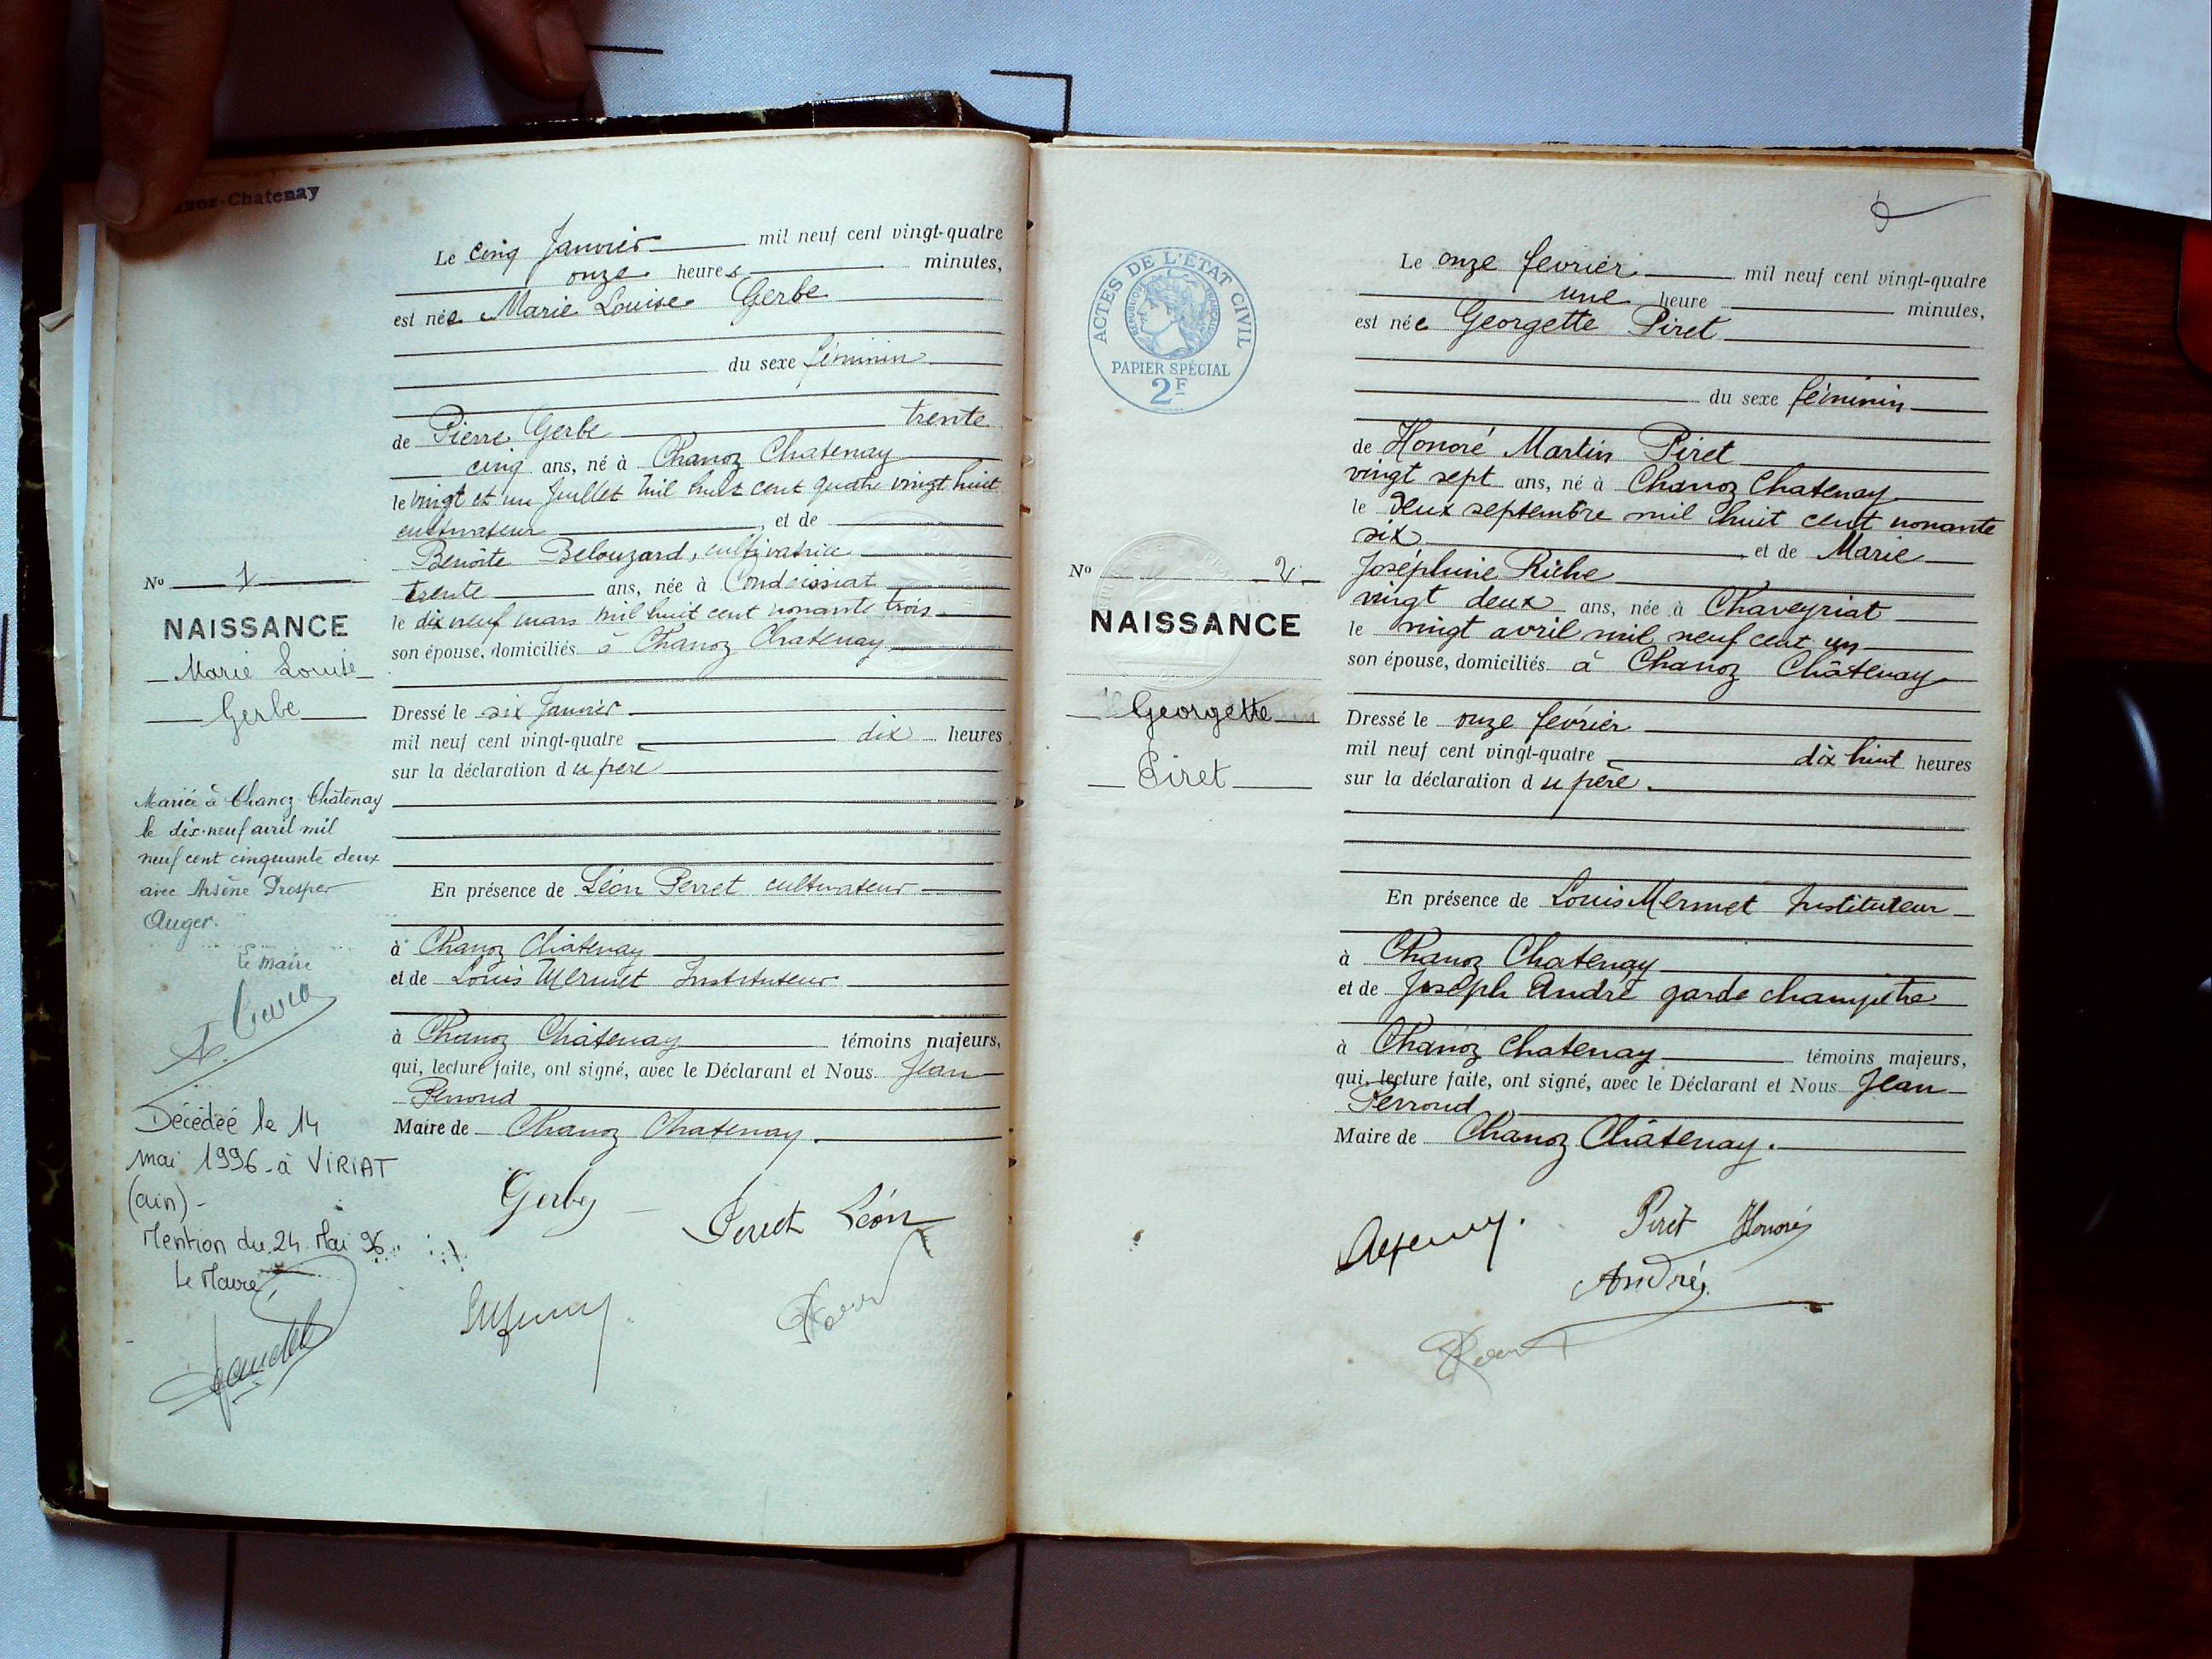 -Chatenay
Le cinq Janvier mil neuf cent vingt-quatre
onze heures minutes,
est née Marie Louise Gerbe
du sexe féminin
de Pierre Gerbe trente
cinq ans, né à Chanoz Chatenay
le vingt et un Juillet mil huit cent quatre vingt huit
cultivateur, et de
Benoite Belouzard, cultivatrice
trente ans, née à Condeissiat
le dix neuf mars mil huit cent nonante trois
son épouse, domiciliés à Chanoz Chatenay
Dressé le six Janvier
mil neuf cent vingt-quatre dix heures
sur la déclaration du père
En présence de Léon Perret cultivateur
à Chanoz Châtenay
et de Louis Mermet Instituteur
à Chanoz Châtenay témoins majeurs,
qui, lecture faite, ont signé, avec le Déclarant et Nous Jean
Perroud
Maire de Chanoz Chatenay.
Gerbe
Perret Léon
No 1
NAISSANCE
Marie Louise
Gerbe
Mariée à Chanoz-Châtenay
le dix-neuf avril mil
neuf cent cinquante deux
avec Arsène Prosper
Auger.
Le maire
Décédée le 14
mai 1996 à VIRIAT
(ain) -
Mention du 24 Mai 96
Le Maire,
ACTES DE L'ÉTAT CIVIL
RÉPUBLIQUE FRANÇAISE
PAPIER SPÉCIAL
2F
No 2
NAISSANCE
Georgette
Piret
Le onze fevrier mil neuf cent vingt-quatre
une heure minutes,
est née Georgette Piret
du sexe féminin
de Honoré Martin Piret
vingt sept ans, né à Chanoz Chatenay
le deux septembre mil huit cent nonante
six et de Marie
Joséphine Riche
vingt deux ans, née à Chaveyriat
le vingt avril mil neuf cent un
son épouse, domiciliés à Chanoz Châtenay
Dressé le onze fevrier
mil neuf cent vingt-quatre dix huit heures
sur la déclaration du père.
En présence de Louis Mermet Instituteur
à Chanoz Chatenay
et de Joseph André garde champêtre
à Chanoz Chatenay témoins majeurs,
qui, lecture faite, ont signé, avec le Déclarant et Nous Jean
Perroud
Maire de Chanoz Châtenay.
Piret Honoré
André